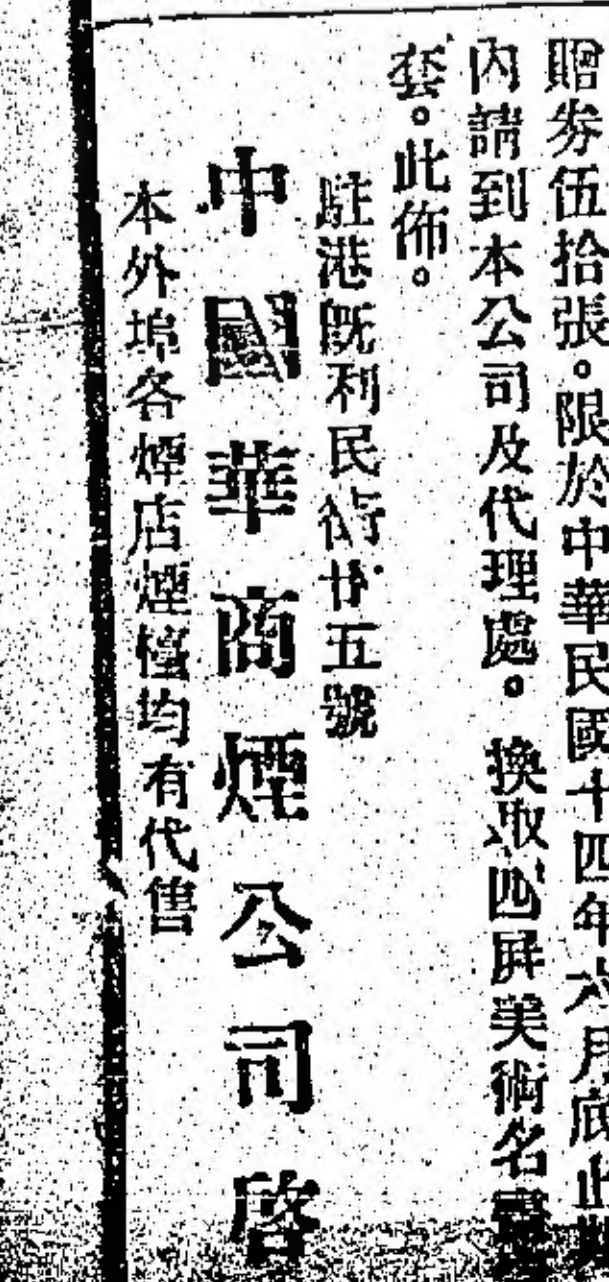 贈券伍拾張。限於中華民國十四年六月底止期
內請到本公司及代理處。換取四屏美術名畫
套。此佈。
駐港旣利民街廿五號
中國華商煙公司啓
本外埠各煙店煙檯均有代售